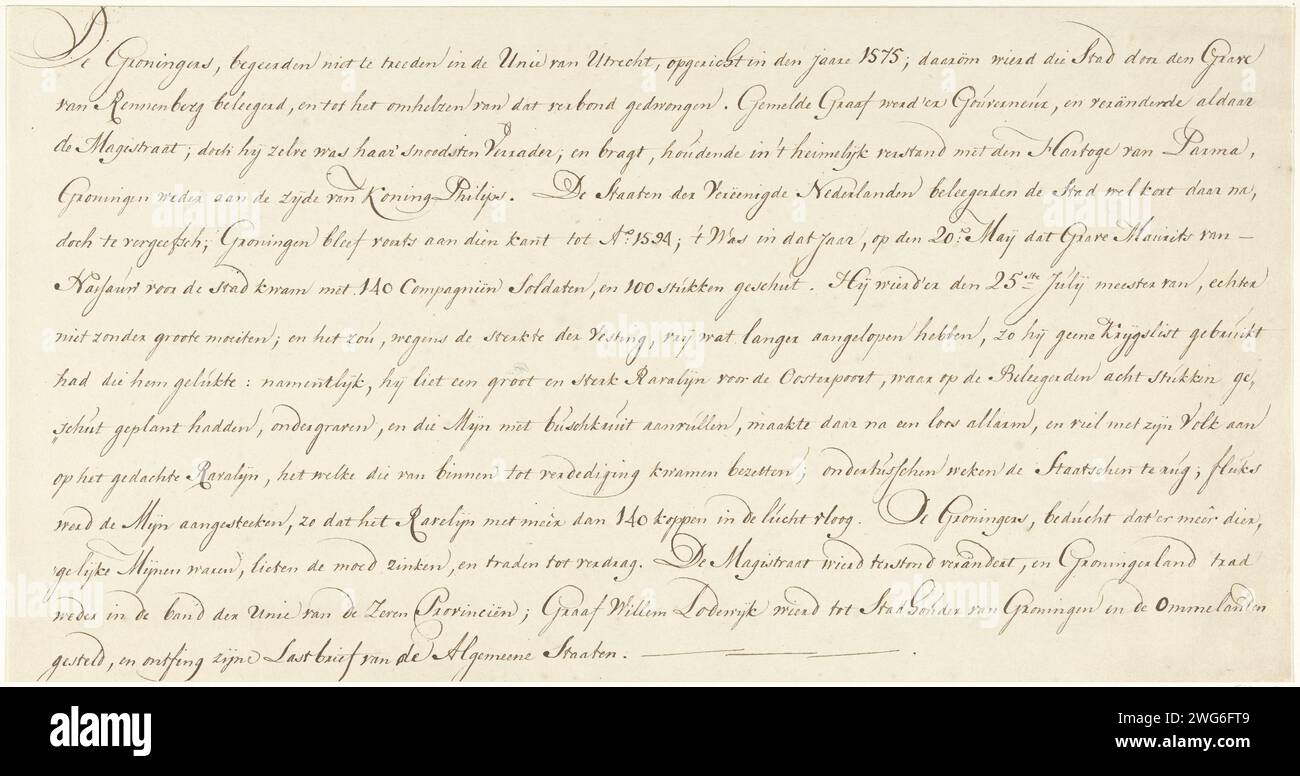 De Groningers, begeerden niet te treeden in de Unie van Utrecht, opgericht in den jaare 1575; daaröm wierd die Stad door den Grave
van Rennenberg beleegerd, en tot het omhelzen van dat verbond gedwongen. Gemelde Graaf werd'er Goúverneúr, en veränderde aldaar
de Magistraat; doch hij zelve was haar snoodsten Verrader; en bragt, hoúdende in't heimelijk verstand met den Hartoge van Parma,
Groningen weder aan de zijde van Koning Philips. De Staaten der Vereenigde Nederlanden beleegerden de Stad wel kort daar na,
doch te vergeefsch; Groningen bleef voorts aan dien kant tot Aº. 1594; 't Was in dat Jaar, op den 20º. Maij dat Grave Maurits van —
Nassaúw voor de stad kwam met 140 Compagniën Soldaten, en 100 stúkken geschut. Hij wierd'er den 25ste Júlij meester van, echter
niet zonder groote moeiten; en het zoú, wegens de sterkte der Vesting, vrij wat langer aangelopen hebben, zo hij geene Krijgslist gebrúikt
had die hem gelúkte: namentlijk, hij liet een groot en sterk Ravelijn voor de Oosterpoort, waar op de Beleegerden acht stúkken ge„
„schut geplant hadden, ondergraven, en die Mijn met búschkrúit aanvúllen, maakte daar na een loos allarm, en viel met zijn Volk aan
op het gedachte Ravelijn, het welke die van binnen tot verdediging kwamen bezetten; ondertússchen weken de Staatschen te rúg; flúks
werd de Mijn aangesteeken, zo dat hét Ravelijn met meêr dan 140 koppen in de lúcht vloog. De Groningers, bedúcht dat'er meêr dier„
„gelijke Mijnen waren, lieten de moed zinken, en traden tot verdrag. De Magistraat wierd terstond verändert, en Groningerland trad
weder in de band der Unie van de Zeven Provinciën; Graaf Willem Lodewijk wierd tot Stadhouder van Groningen en de Ommelanden
gesteld, en ontfing zijne Lastbrief van de Algemeene Staaten.
alamy
Image ID: 2WG6FT9
www.alamy.com